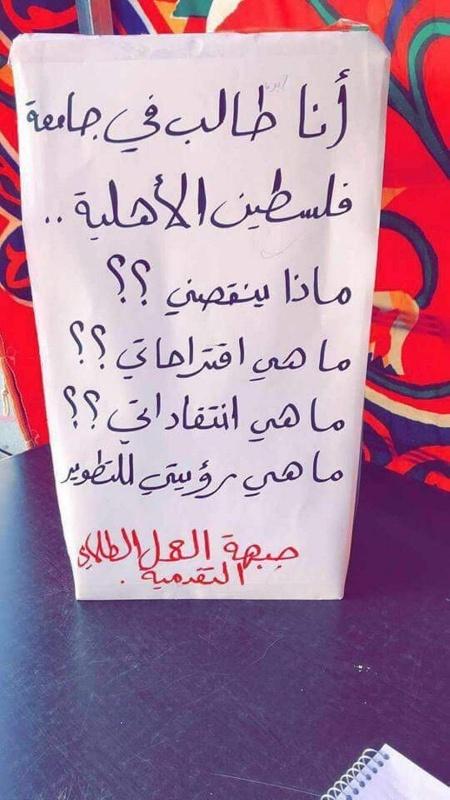 أنا طالب في جامعة
فلسطين الأهلية ..
ماذا ينقصني ؟؟
ما هي اقتراحاتي ؟؟
ما هي انتقاداتي ؟؟
ما هي رؤيتي للتطوير
جبهة العمل الطلابي
التقدمية .